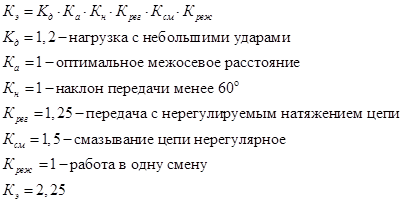 Kэ = Kд · Kа · Kн · Kрег · Kсм · Kреж
Kд = 1,2 – нагрузка с небольшими ударами
Kа = 1 – оптимальное межосевое расстояние
Kн = 1 – наклон передачи менее 60°
Kрег = 1,25 – передача с нерегулируемым натяжением цепи
Kсм = 1,5 – смазывание цепи нерегулярное
Kреж = 1 – работа в одну смену
Kэ = 2,25